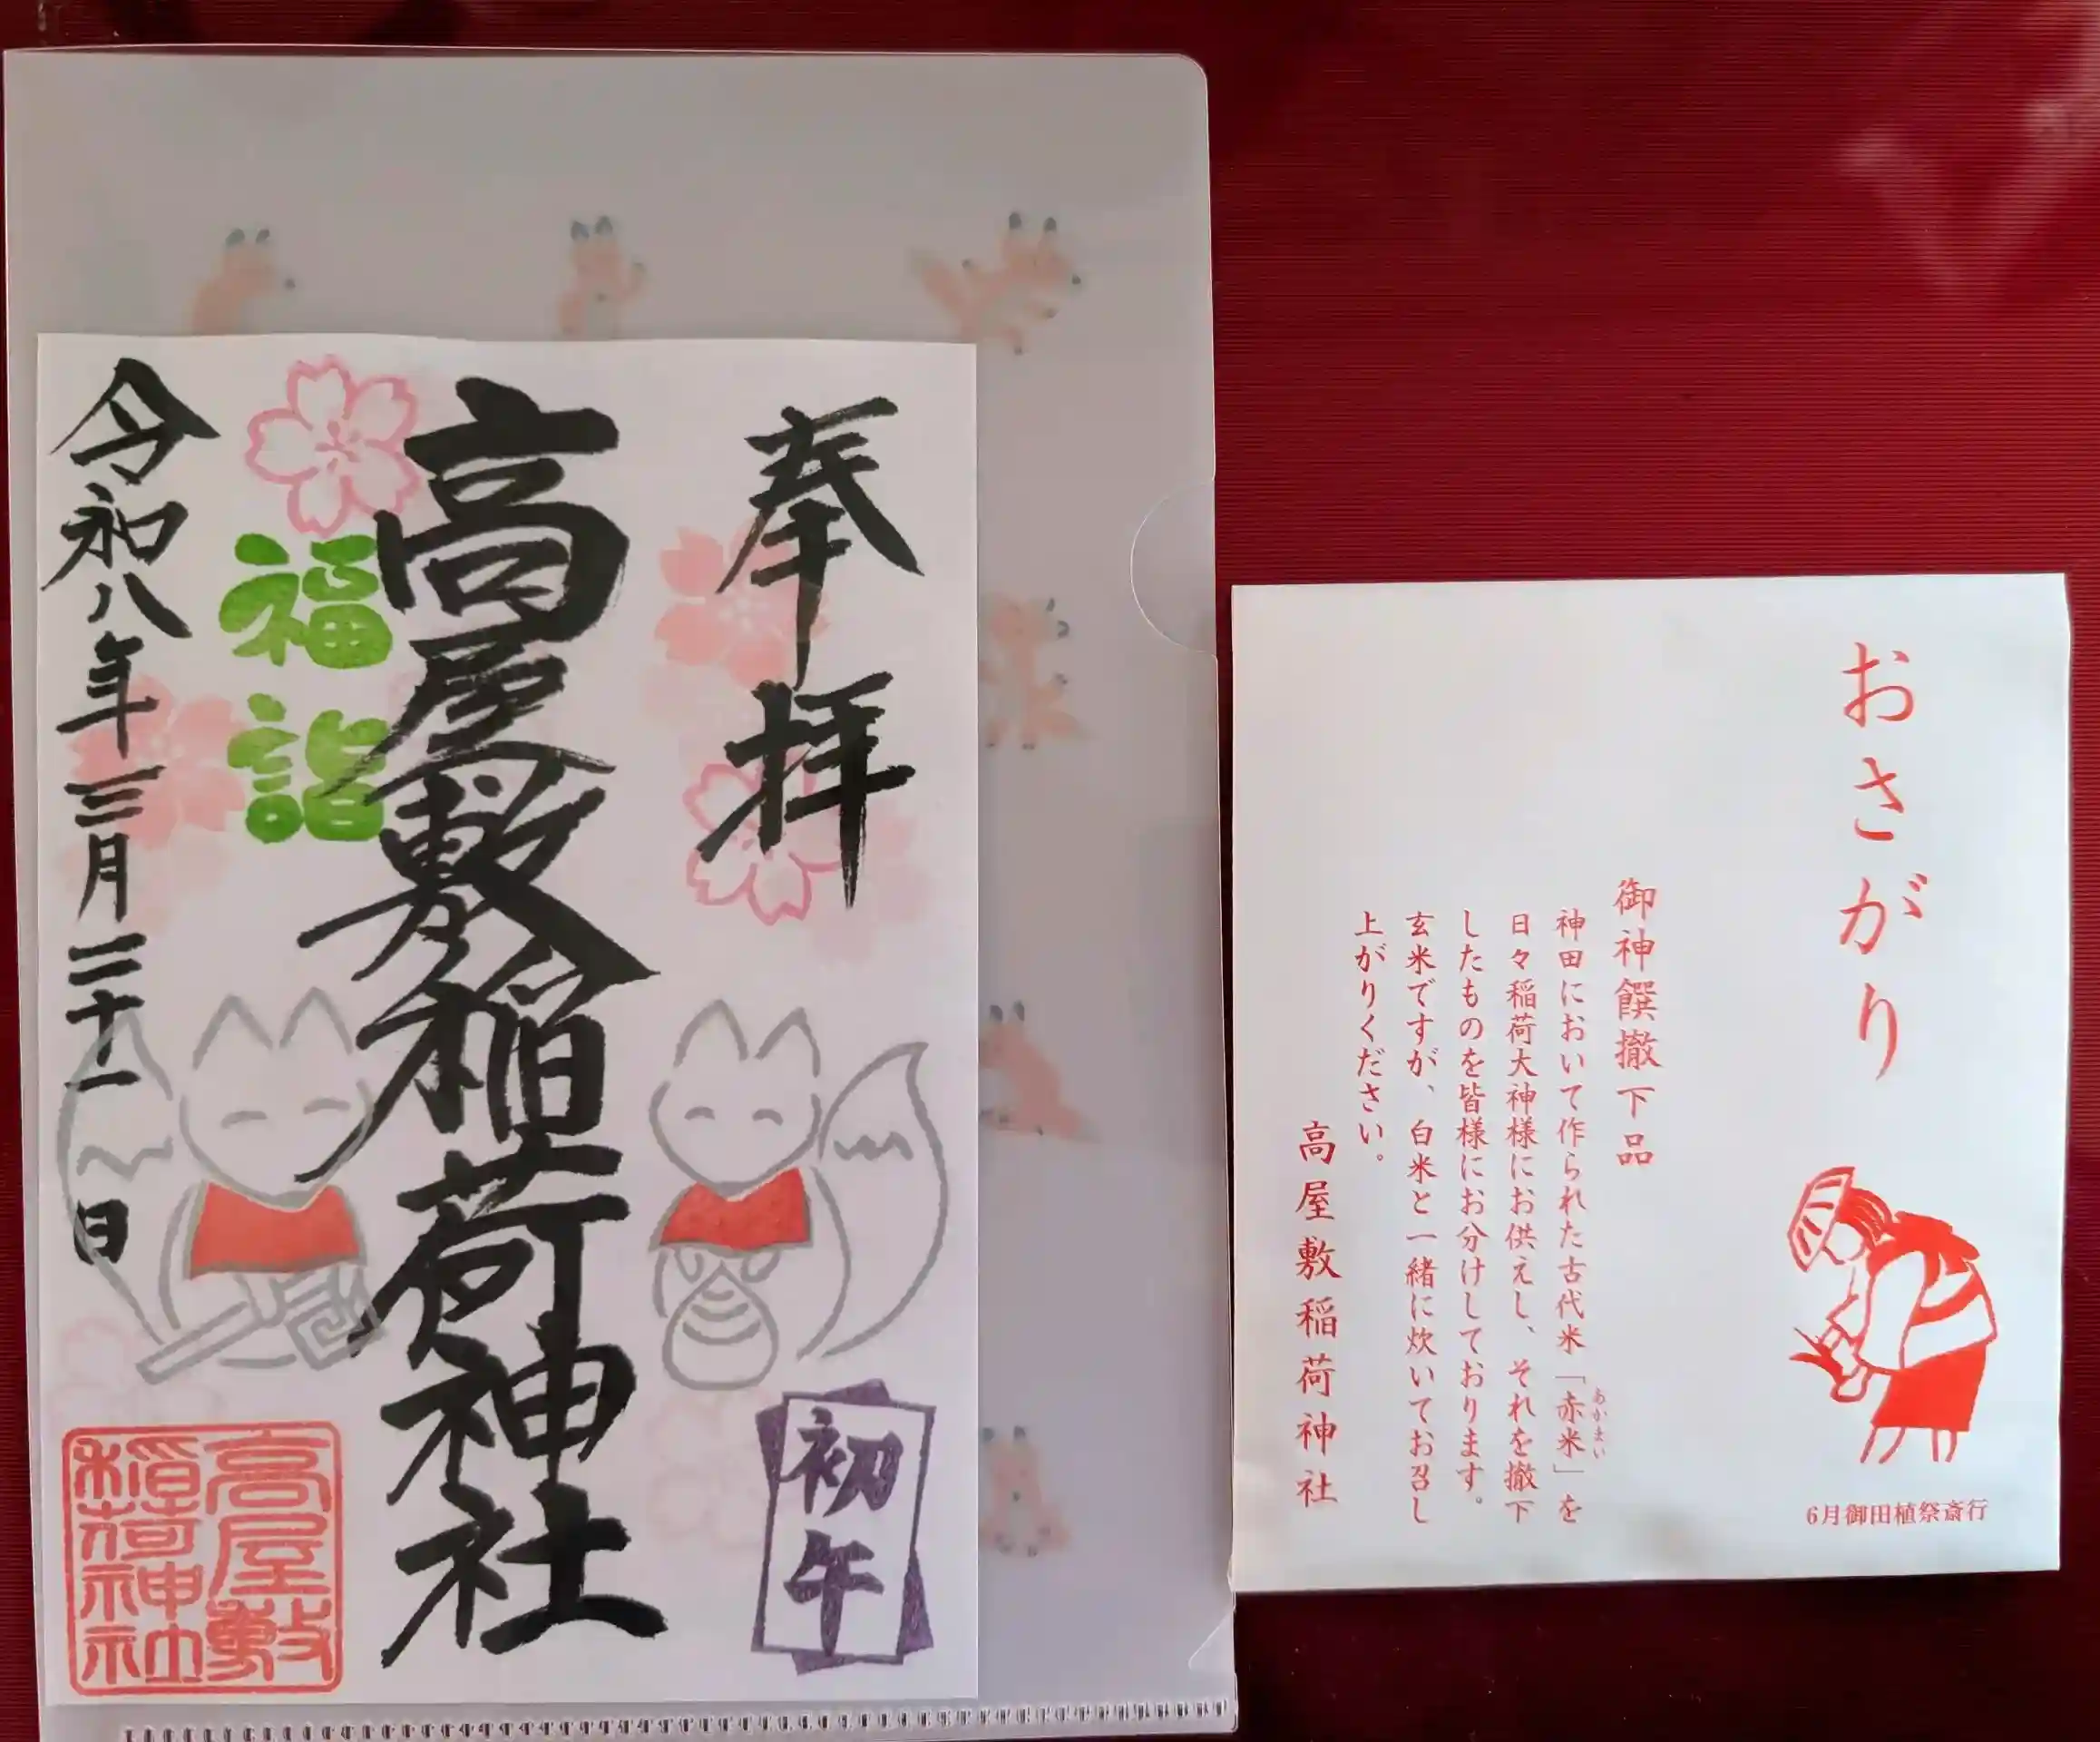 奉拝
初午
高屋敷稲荷神社
福詣
令和八年三月二十一日
高屋敷
稲荷神社
おさがり
6月御田植祭斎行
御神饌撤下品
神田において作られた古代米「赤米」を
あかまい
日々稲荷大神様にお供えし、それを撤下
したものを皆様にお分けしております。
玄米ですが、白米と一緒に炊いてお召し
上がりください。
高屋敷稲荷神社